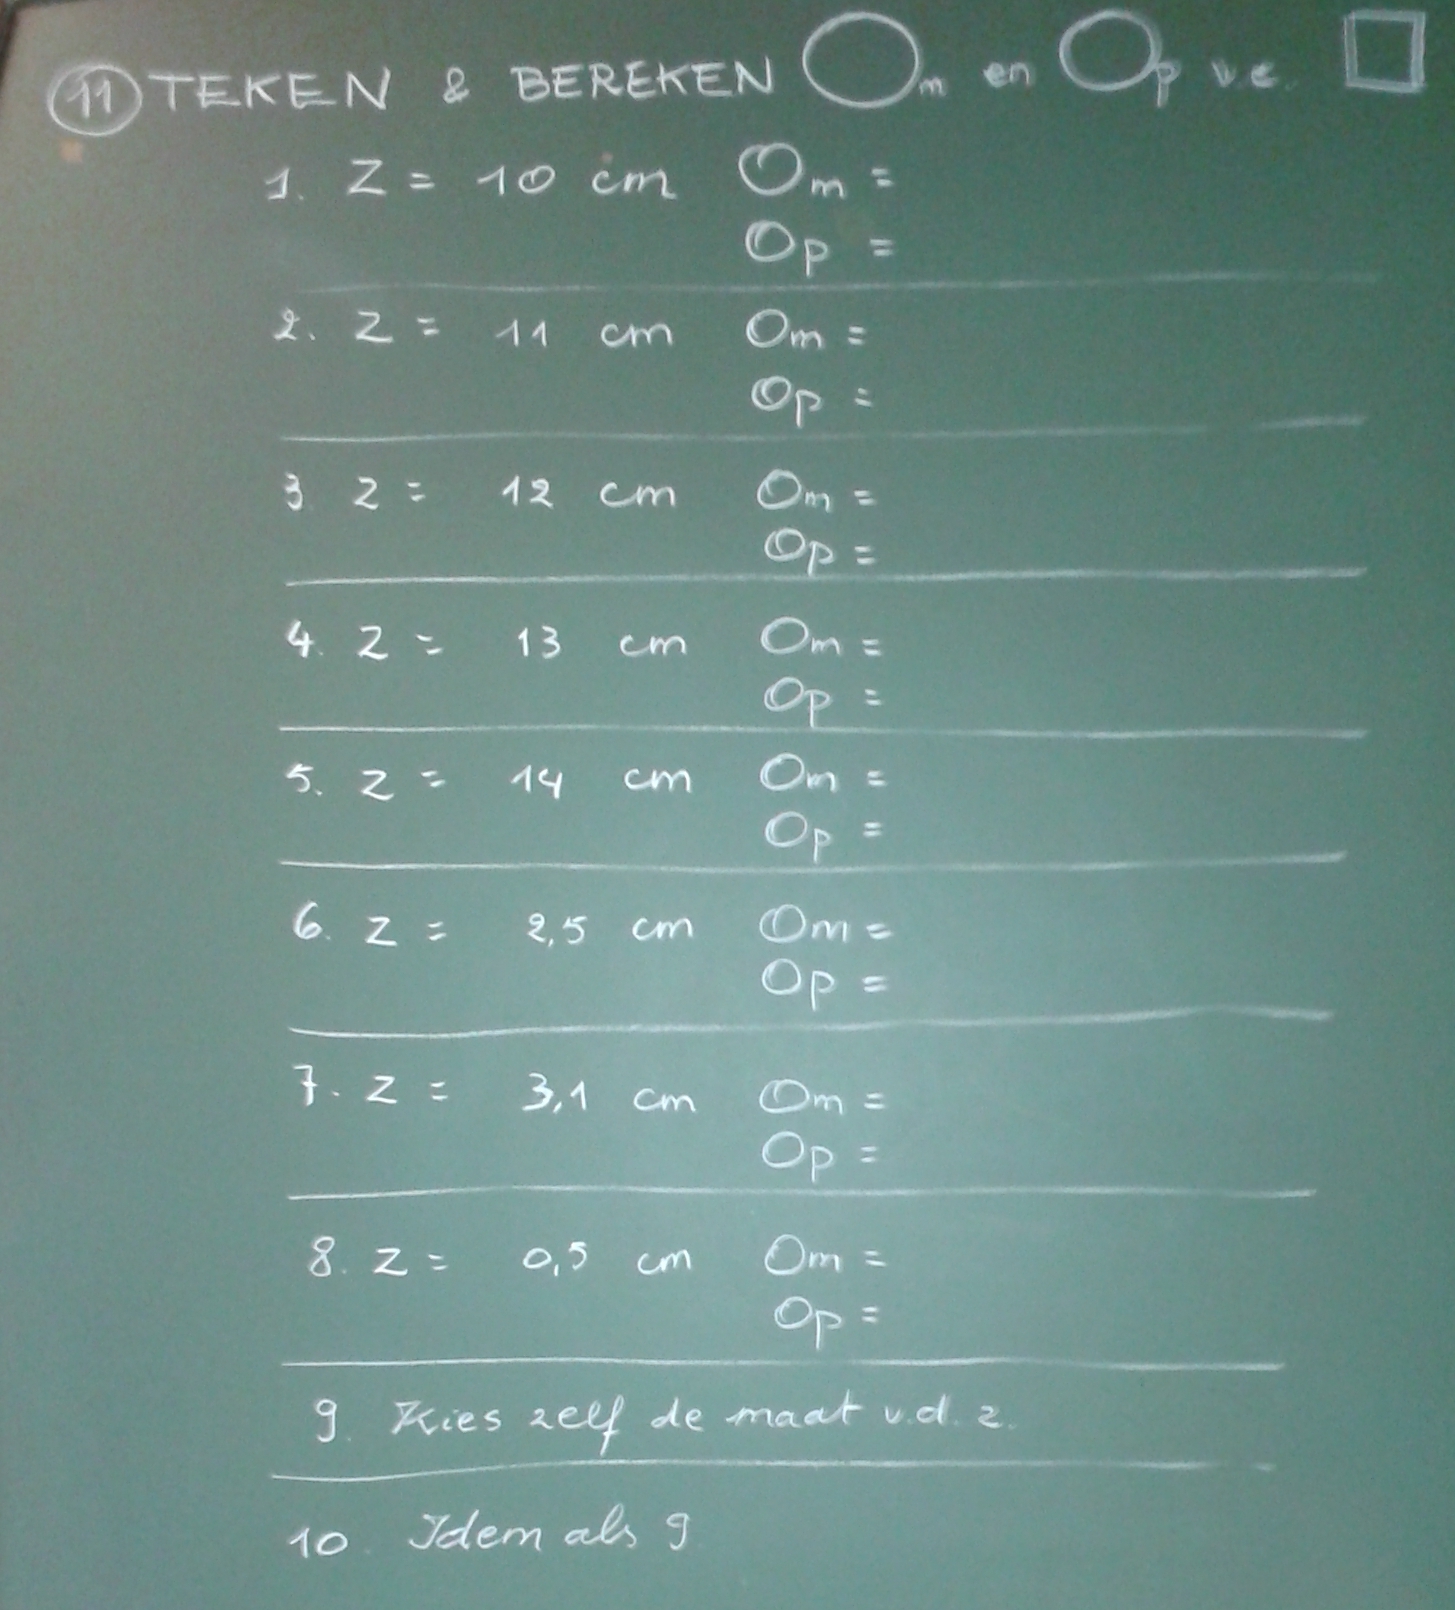 11 TEKEN & BEREKEN Om en Op v.e.
1. Z = 10 cm Om =
Op =
2. Z = 11 cm Om =
Op =
3. Z = 12 cm Om =
Op =
4. Z = 13 cm Om =
Op =
5. Z = 14 cm Om =
Op =
6. Z = 2,5 cm Om =
Op =
7. Z = 3,1 cm Om =
Op =
8. Z = 0,5 cm Om =
Op =
9. Kies zelf de maat v.d. z.
10. Idem als 9